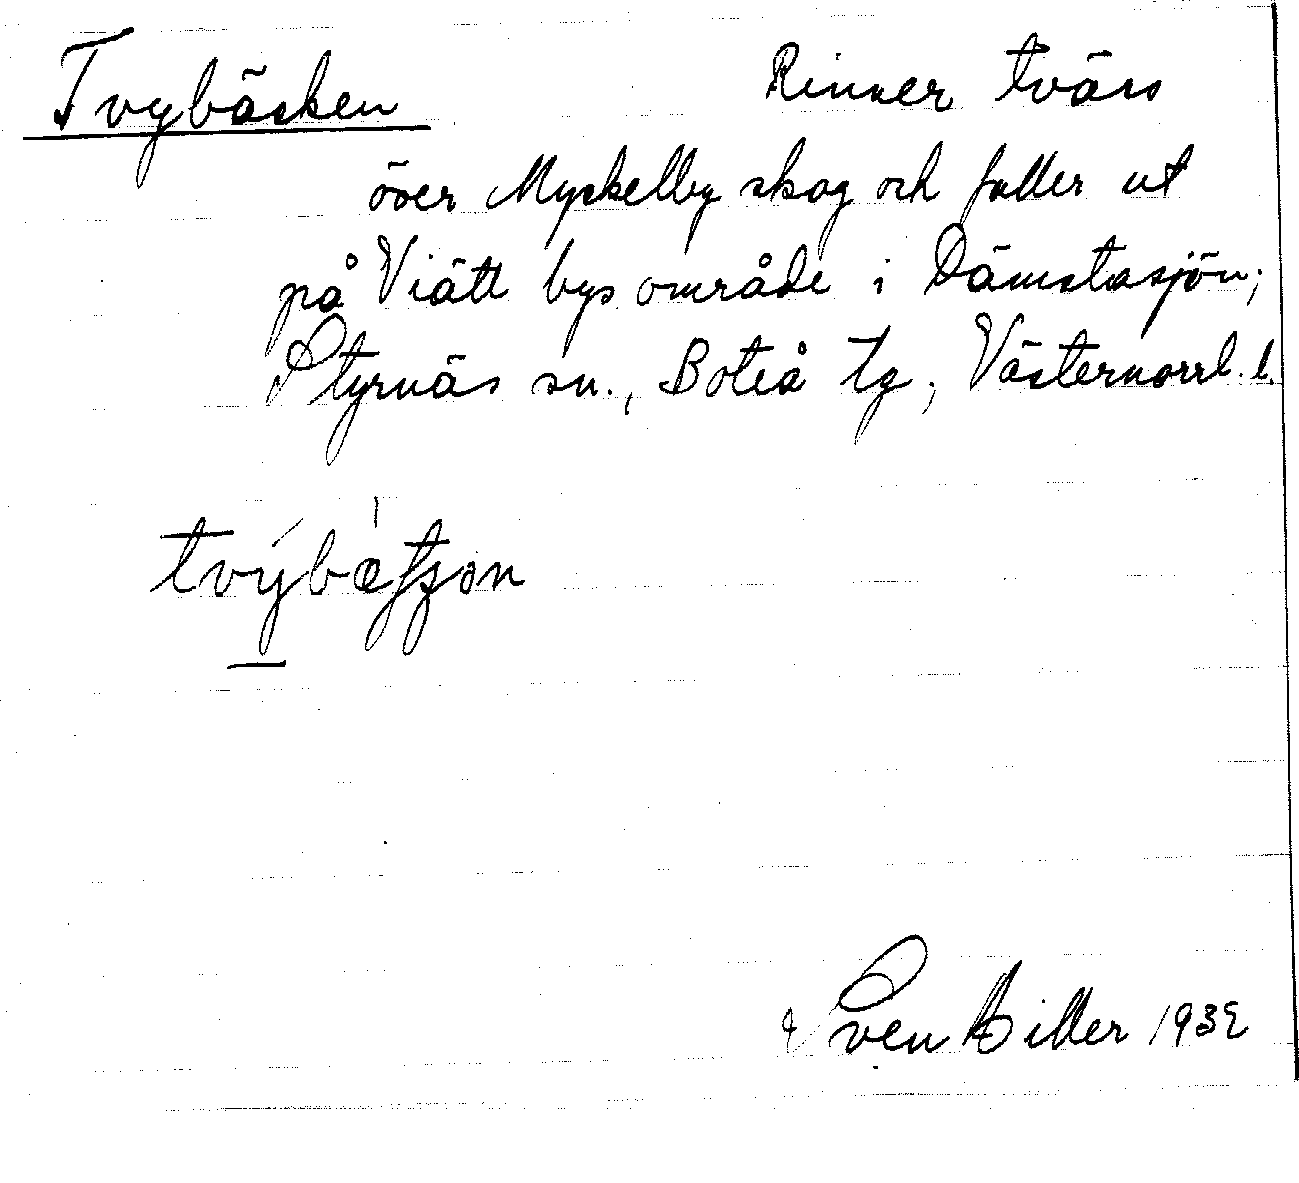 Tvybäcken Rinner tvärs
över Myckelby skog och faller ut
på Viätt bys område i Dämstasjön;
Styrnäs sn., Boteå tg, Västernorrl. l.
Sven Hiller 1932